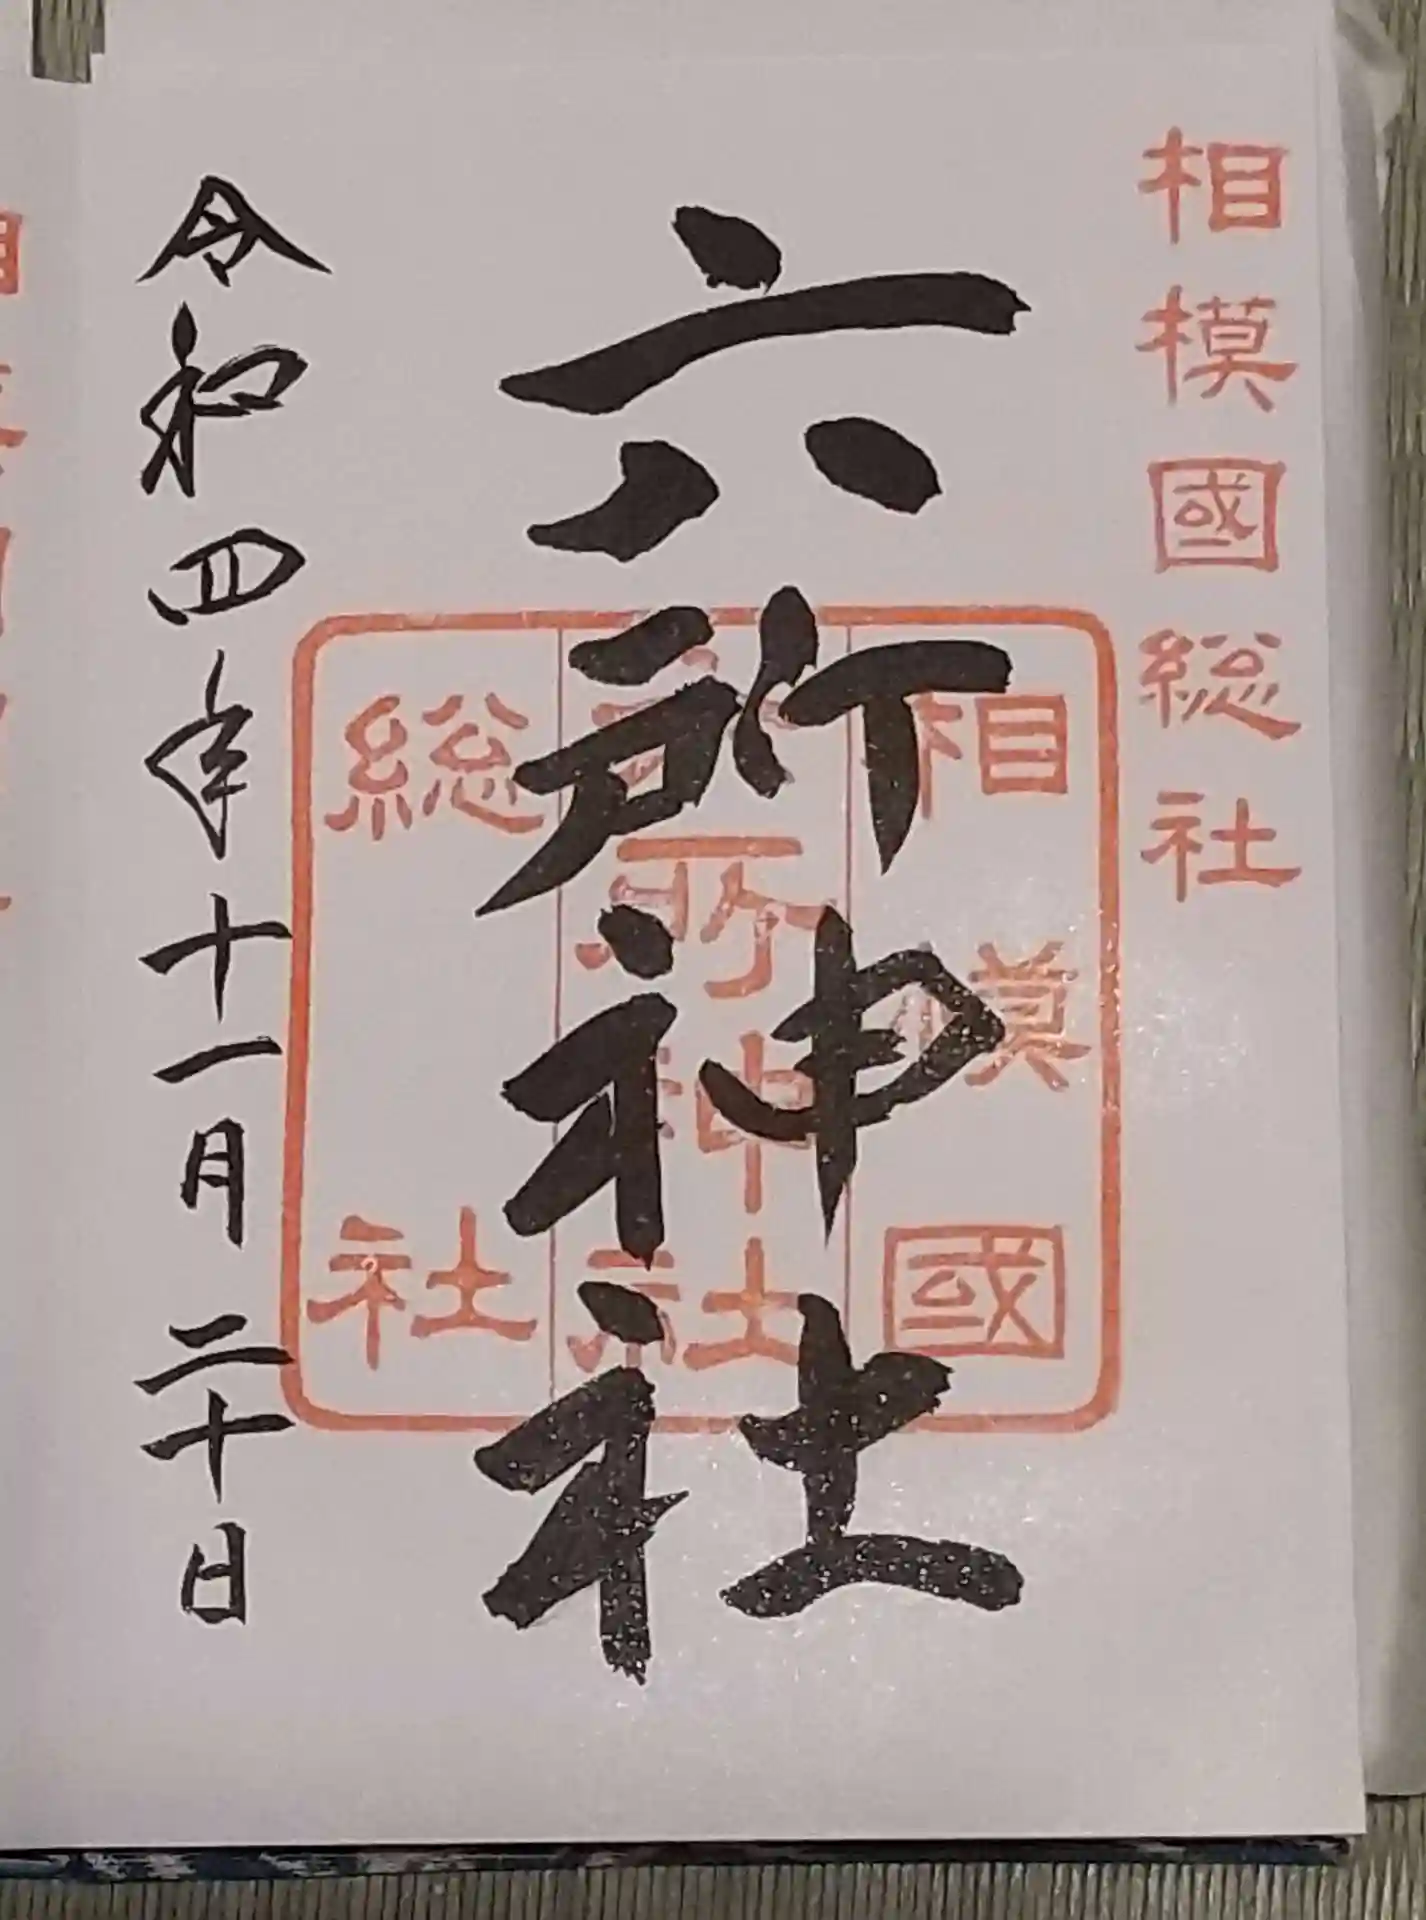 相模國総社
六所神社
相模國
六所神社
総社
令和四年十一月二十日